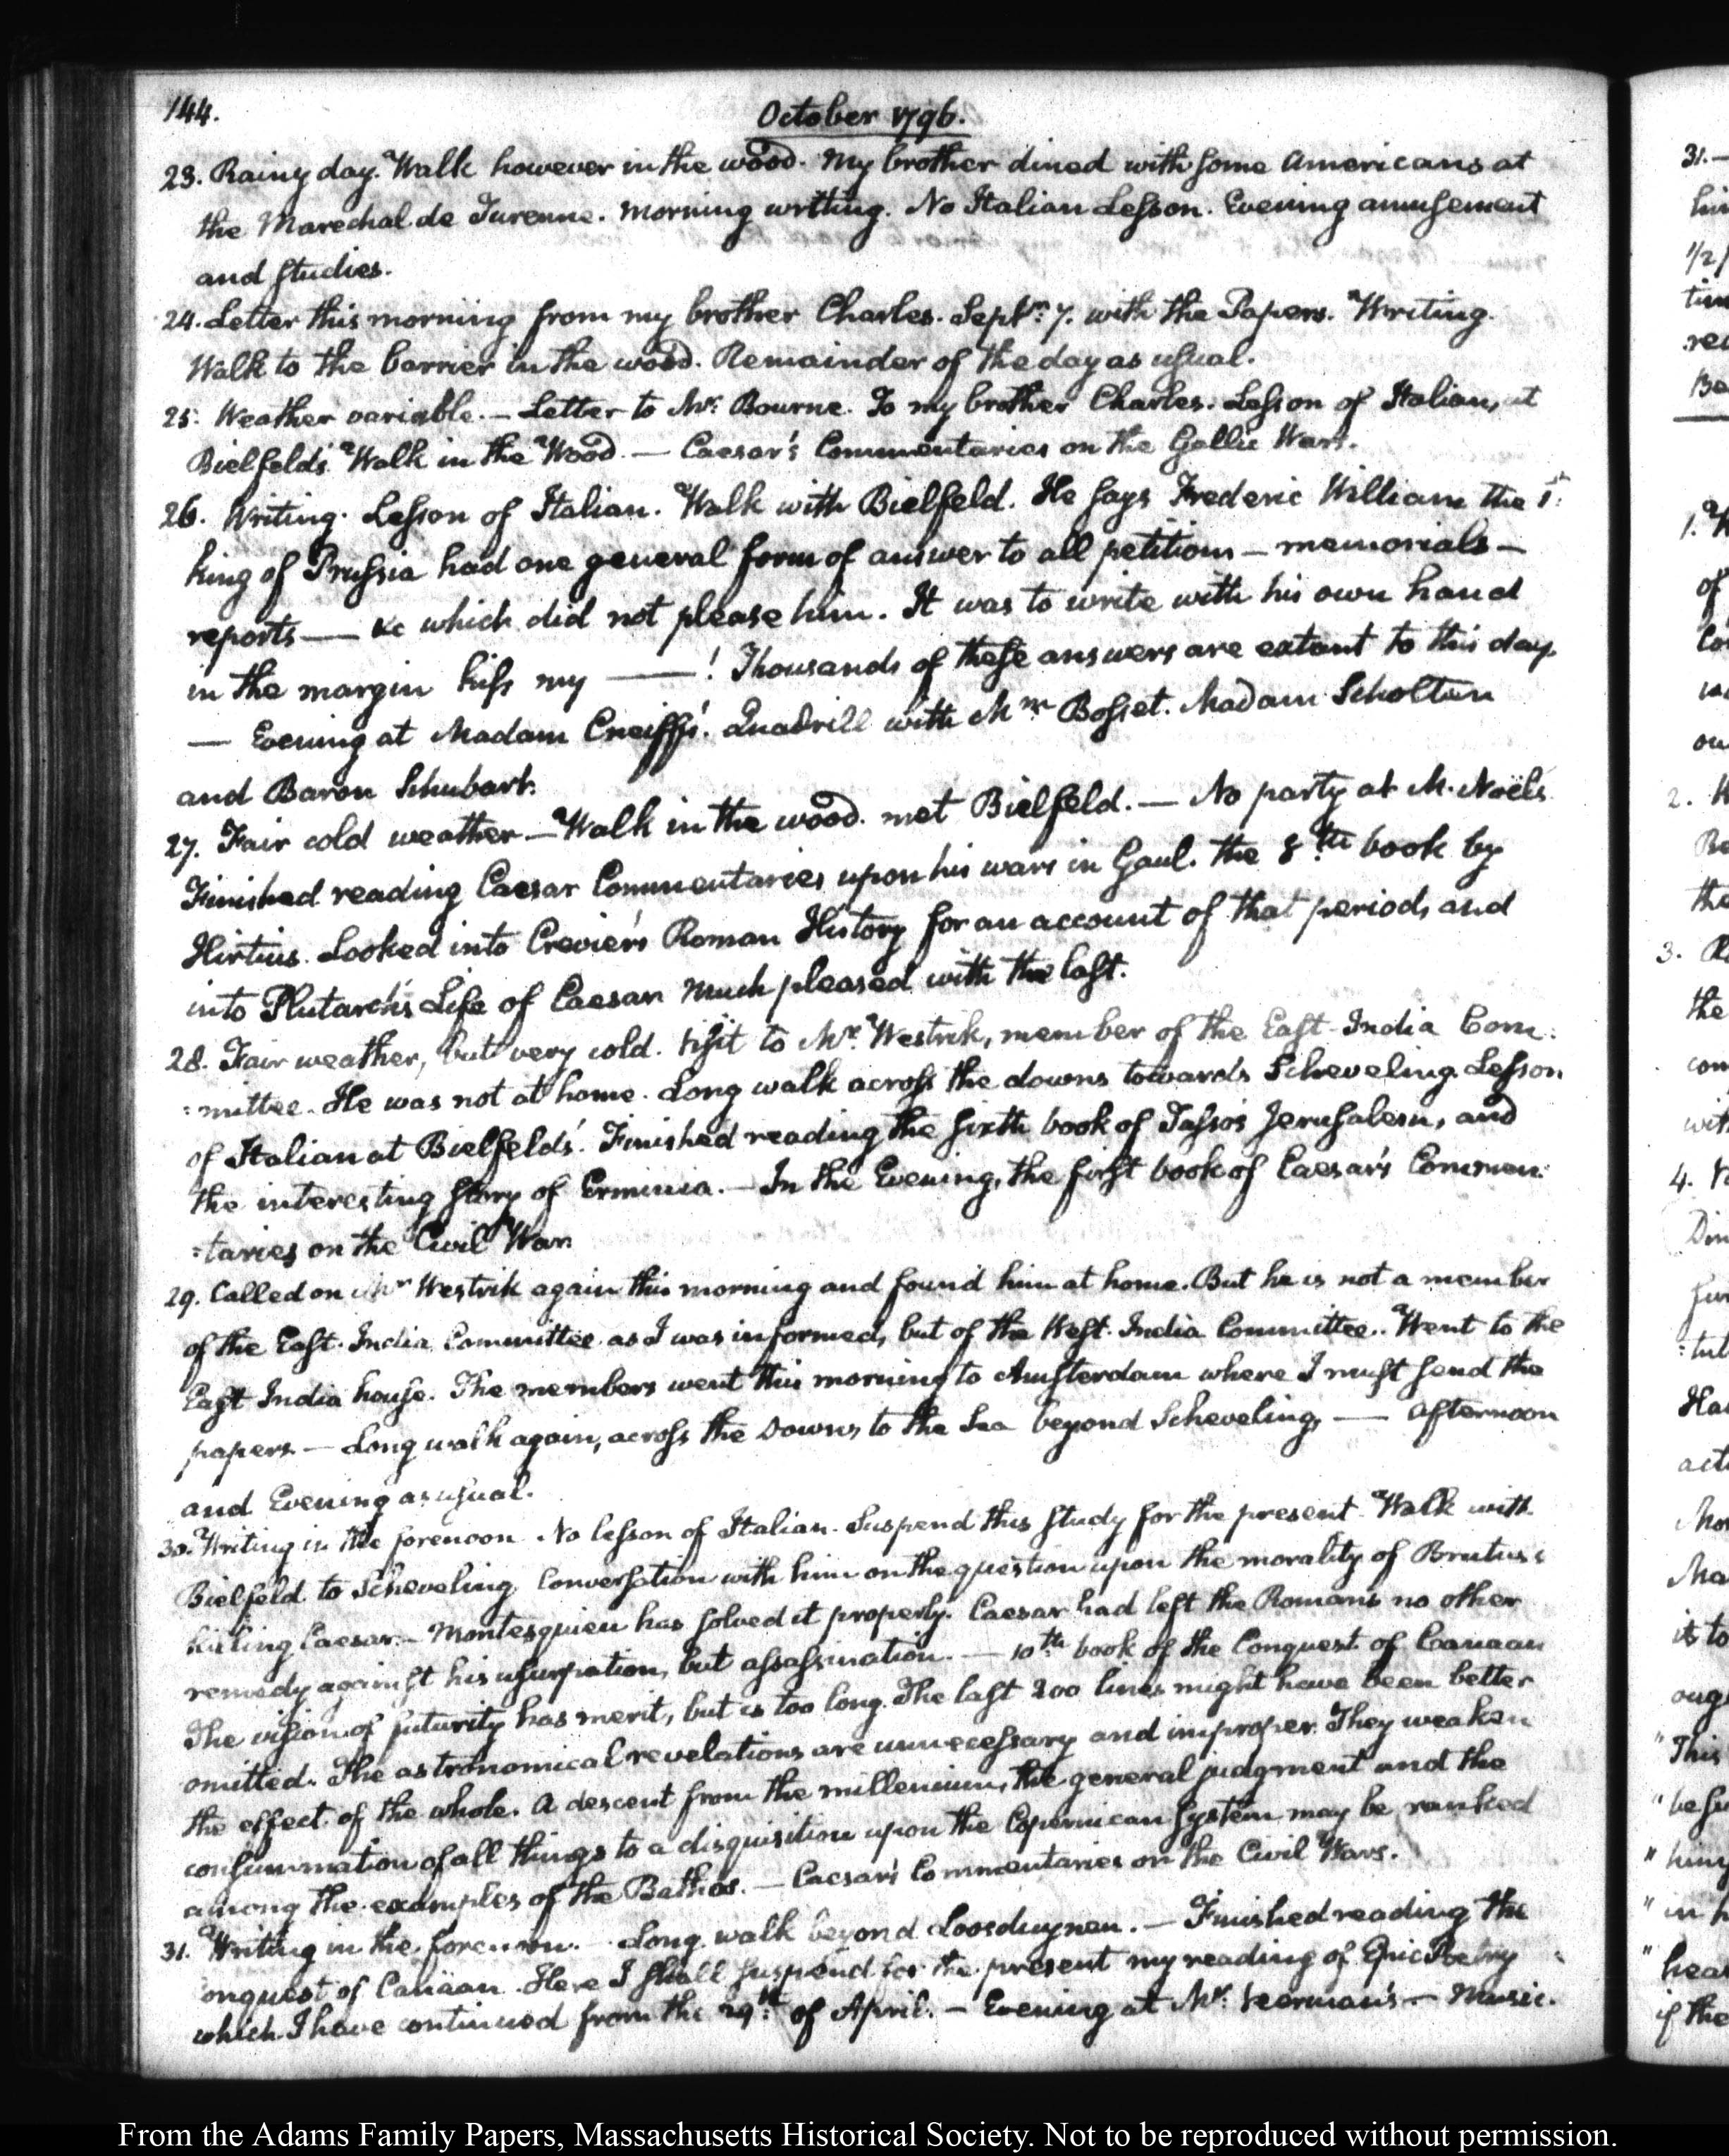 144.
October 1796.
23. Rainy day. Walk however in the wood. My brother dined with some Americans at
the Marechal de Turenne. Morning writing. No Italian Lesson. Evening amusement
and studies.
24. Letter this morning from my brother Charles. Septr: 7. with the Papers. Writing.
Walk to the barrier in the wood. Remainder of the day as usual.
25. Weather variable. — Letter to Mr: Bourne. To my brother Charles. Lesson of Italian, at
Bielfeld's. Walk in the Wood. — Caesar's Commentaries on the Gallic Wars.
26. Writing. Lesson of Italian. Walk with Bielfeld. He says Frederic William the 1st:
king of Prussia had one general form of answer to all petitions — memorials —
reports — &c which did not please him. It was to write with his own hand
in the margin kiss my ——! Thousands of these answers are extant to this day.
— Evening at Madam Cneiffs'. Quadrill with Mme Bosset. Madam Scholten
and Baron Schubart.
27. Fair cold weather — Walk in the wood. met Bielfeld. — No party at M. Noëls
Finished reading Caesar Commentaries upon his wars in Gaul. The 8th: book by
Hirtius. Looked into Crevier's Roman History for an account of that period, and
into Plutarch's Life of Caesar. Much pleased with the last.
28. Fair weather, but very cold. Visit to Mr: Westrik, member of the East-India Com:
:mittee. He was not at home. Long walk across the downs towards Scheveling. Lesson
of Italian at Bielfelds'. Finished reading the sixth book of Tasso's Jerusalem, and
the interesting story of Erminia. — In the Evening, the first book of Caesar's Commen:
:taries on the Civil War.
29. Called on Mr Westrik again this morning and found him at home. But he is not a member
of the East-India Committee as I was informed, but of the West-India Committee. Went to the
East India house. The members went this morning to Amsterdam where I must send the
papers — Long walk again, across the Downs to the Sea beyond Scheveling, — Afternoon
and Evening as usual.
30. Writing in the forenoon. No lesson of Italian. Suspend this study for the present. Walk with
Bielfeld to Scheveling. Conversation with him on the question upon the morality of Brutus's
killing Caesar. — Montesquieu has solved it properly. Caesar had left the Romans no other
remedy against his usurpation, but assassination. — 10th: book of the Conquest of Canaan
The vision of futurity has merit, but is too long. The last 200 lines might have been better
omitted. The astronomical revelations are unnecessary and improper. They weaken
the effect of the whole. A descent from the millenium, the general judgment and the
consummation of all things to a disquisition upon the Copernican System may be ranked
among the examples of the Bathos. — Caesar's Commentaries on the Civil Wars.
31. Writing in the forenoon. — Long walk beyond Loosduynen. — Finished reading the
onquest of Canäan. Here I shall suspend for the present my reading of Epic Poetry
which I have continued from the 29th: of April. — Evening at Mr: Veerman's — Music.
31.
1/2
1.
of
2.
3.
the
4.
its to
"This
"
"in
"
if the
From the Adams Family Papers, Massachusetts Historical Society. Not to be reproduced without permission.